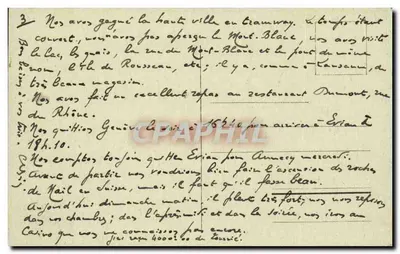 3 Nos avons gagné la haute ville en tramway. Le temps étant
couvert, nous n'avons pas aperçu le Mont-Blanc, nos avons visité
le lac, les quais, la rue du Mont-Blanc et le pont du même
nom, l'île de Rousseau, etc; il y a, comme à Lausanne, de
très beaux magasins.
Nos avons fait un excellent repas au restaurant Dumont, rue
du Rhône.
Nos quittions Genève le soir à 16h10 pour arriver à Evian à
18h.10.
Nos comptons toujours quitter Evian pour Annecy mercredi.
Avant de partir nos voudrions bien faire l'ascension des roches
de Nail en Suisse, mais il faut qu'il fasse beau.
Aujourd'hui dimanche matin, il pleut très fort, nos nos reposons
dans nos chambres; dans l'après midi et dans la soirée, nos irons au
Casino que nos ne connaissons pas encore.